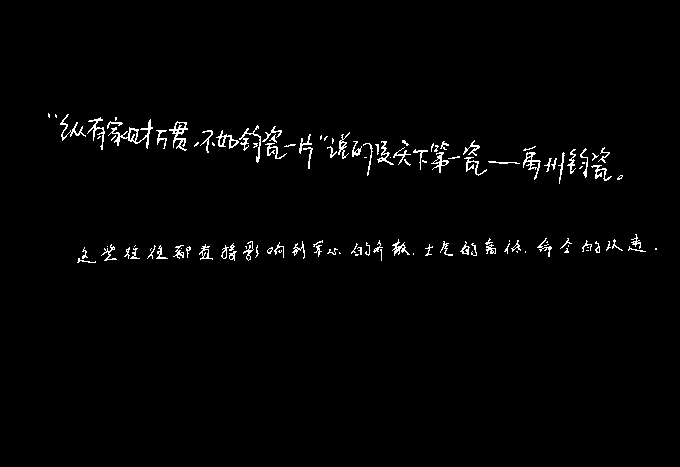 “纵有家财万贯,不如钧瓷一片”说的是天下第一瓷——禹州钧瓷。
这些往往都直接影响到军心的齐散、士气的高低、命令的从违.